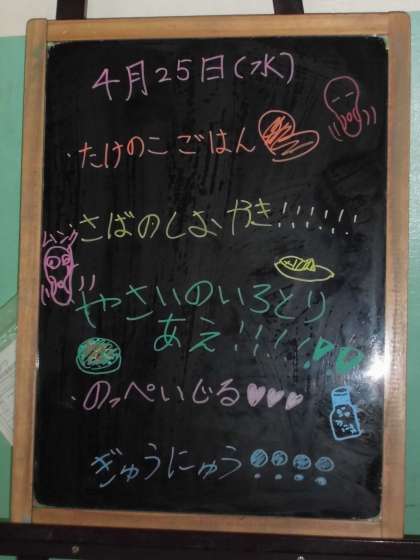 4月25日(水)
・たけのこごはん
・さばのしおやき!!!!!!
ムンッ
やさいのいろとり
あえ!!!!!
・のっぺいじる♥♥♥
ぎゅうにゅう!!!!